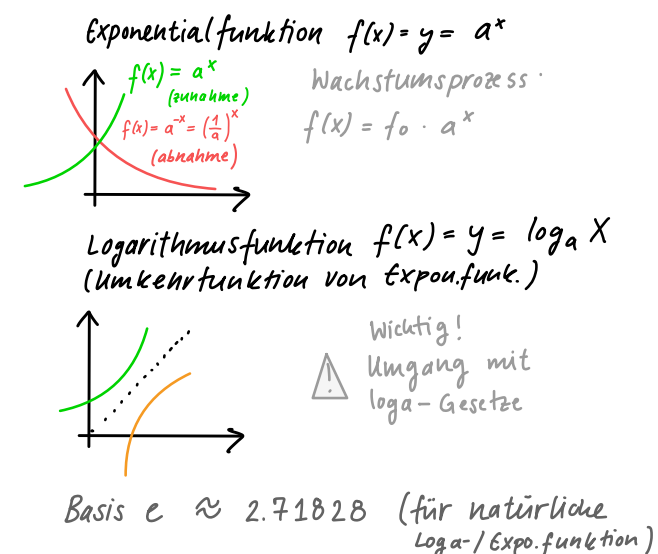 Exponentialfunktion f(x) = y = aˣ
f(x) = aˣ
(zunahme)
f(x) = a⁻ˣ = (1/a)ˣ
(abnahme)
Wachstumsprozess
f(x) = f₀ · aˣ
Logarithmusfunktion f(x) = y = logₐ X
(Umkehrfunktion von Expon.funk.)
Wichtig!
Umgang mit
loga-Gesetze
!
Basis e ≈ 2.71828 (für natürliche
Loga-/Expo.funktion)